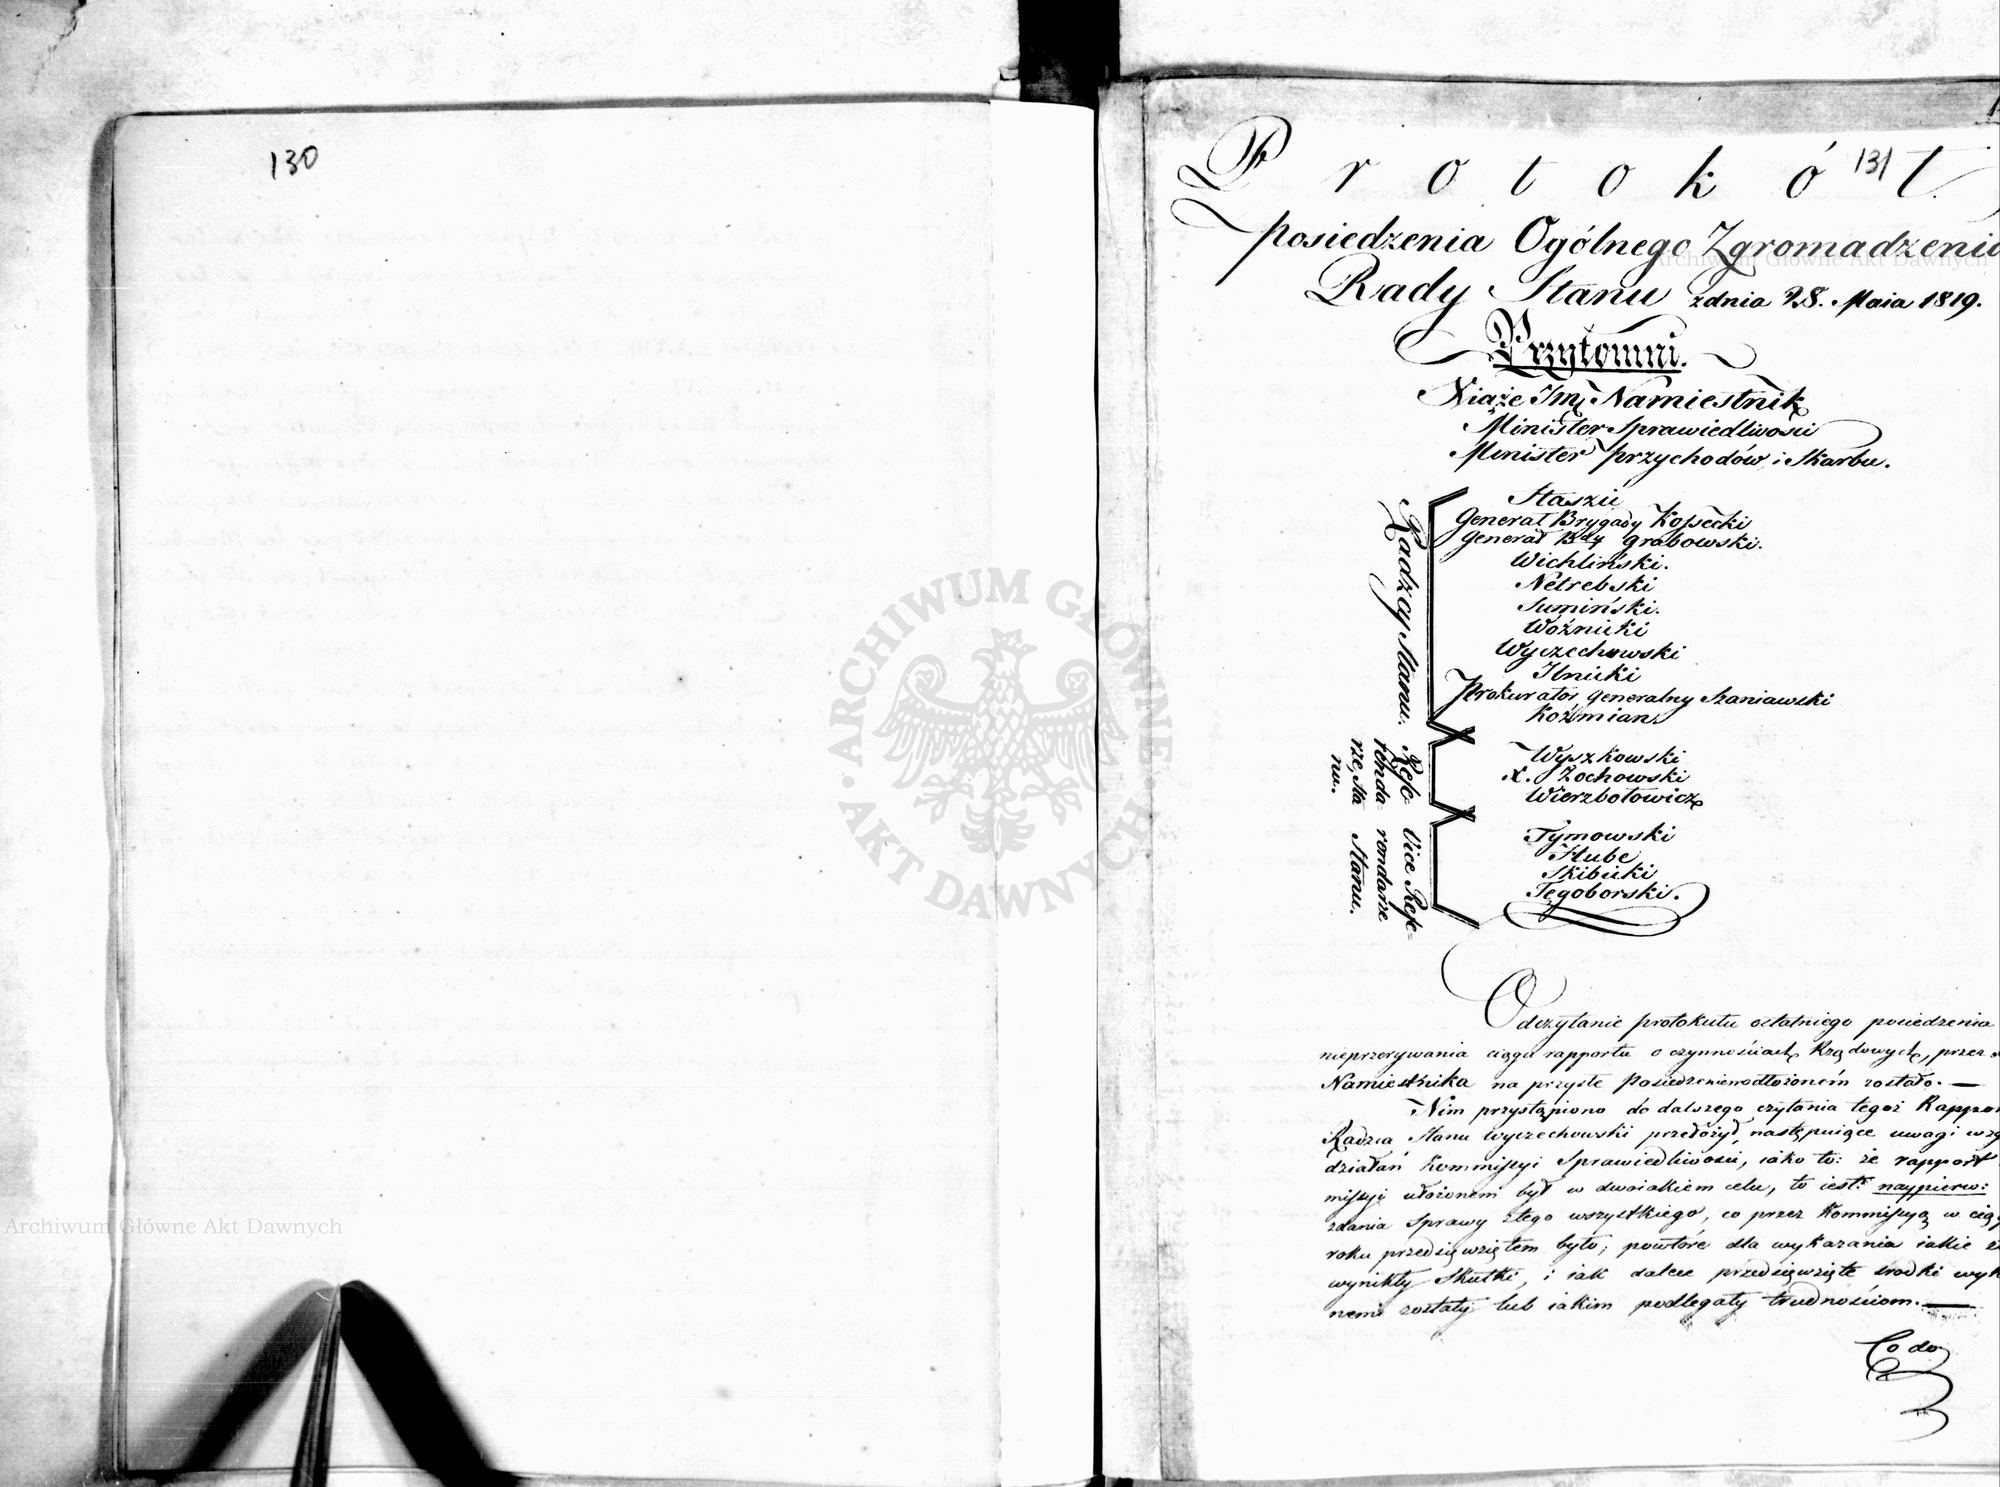 130
131
Protokół
posiedzenia Ogólnego Zgromadzenia
Rady Stanu zdnia 28. Maia 1819.
Przytomni.
Xiąże Jmć Namiestnik
Minister Sprawiedliwości
Minister przychodów i Skarbu.
Radzcy Stanu.
Staszic
Generał Brygady Kossecki
Generał Bdy Grabowski.
Wichliński.
Netrebski
Sumiński.
Woźnicki
Wyczechowski
Ilnicki
Prokurator Generalny Szaniawski
Koźmian.
Refe-
renda-
rze Sta
nu.
Wyszkowski
X. Żochowski
Wierzbołowicz
Vice Refe-
rendarze
Stanu.
Tymowski
Hube
Skibicki
Tęgoborski.
Odczytanie protokułu ostatniego posiedzenia
nieprzerywania ciągu rapportu o czynnościach Rządowych, przez
Namiestnika na przyszłe posiedzenie odłożoném zostało. —
Nim przystąpiono do dalszego czytania tegoż Rappor
Radzca Stanu Wyczechowski przełożył, następuiące uwagi wzg
działań Kommissyi Sprawiedliwości, iako to: że rapport
missyi ułożonem był w dwoiakiem celu, to iest: naypierw:
zdania Sprawy ztego wszystkiego, co przez Kommissyą w cią
roku przedsięwziętem było; powtóre dla wykazania iakie z
wynikły Skutki, i iak dalece przedsięwzięte środki wyk
nemi zostały lub iakim podlegały trudnościom. —
Co do
ARCHIWUM GŁÓWNE AKT DAWNYCH
Archiwum Główne Akt Dawnych
Archiwum Główne Akt Dawnych